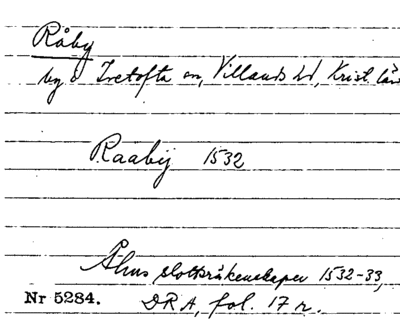 Råby
by i Ivetofta sn, Villands hd, Krist. län
Raabij 1532
Åhus slottsräkenskaper 1532-33,
Nr 5284. DRA, fol. 17 r.